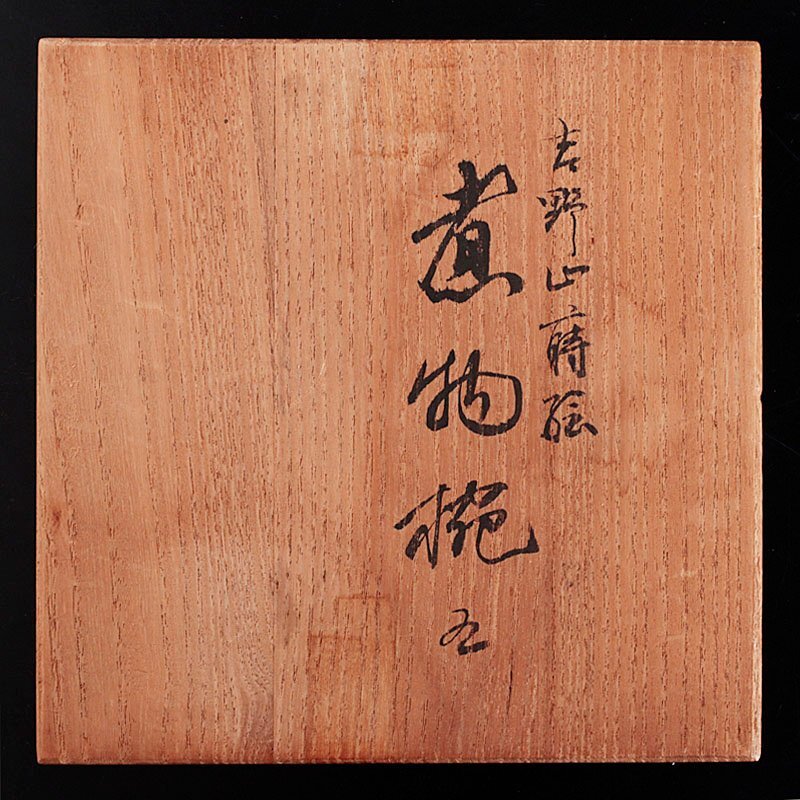 吉野山蒔絵
煮物椀 五